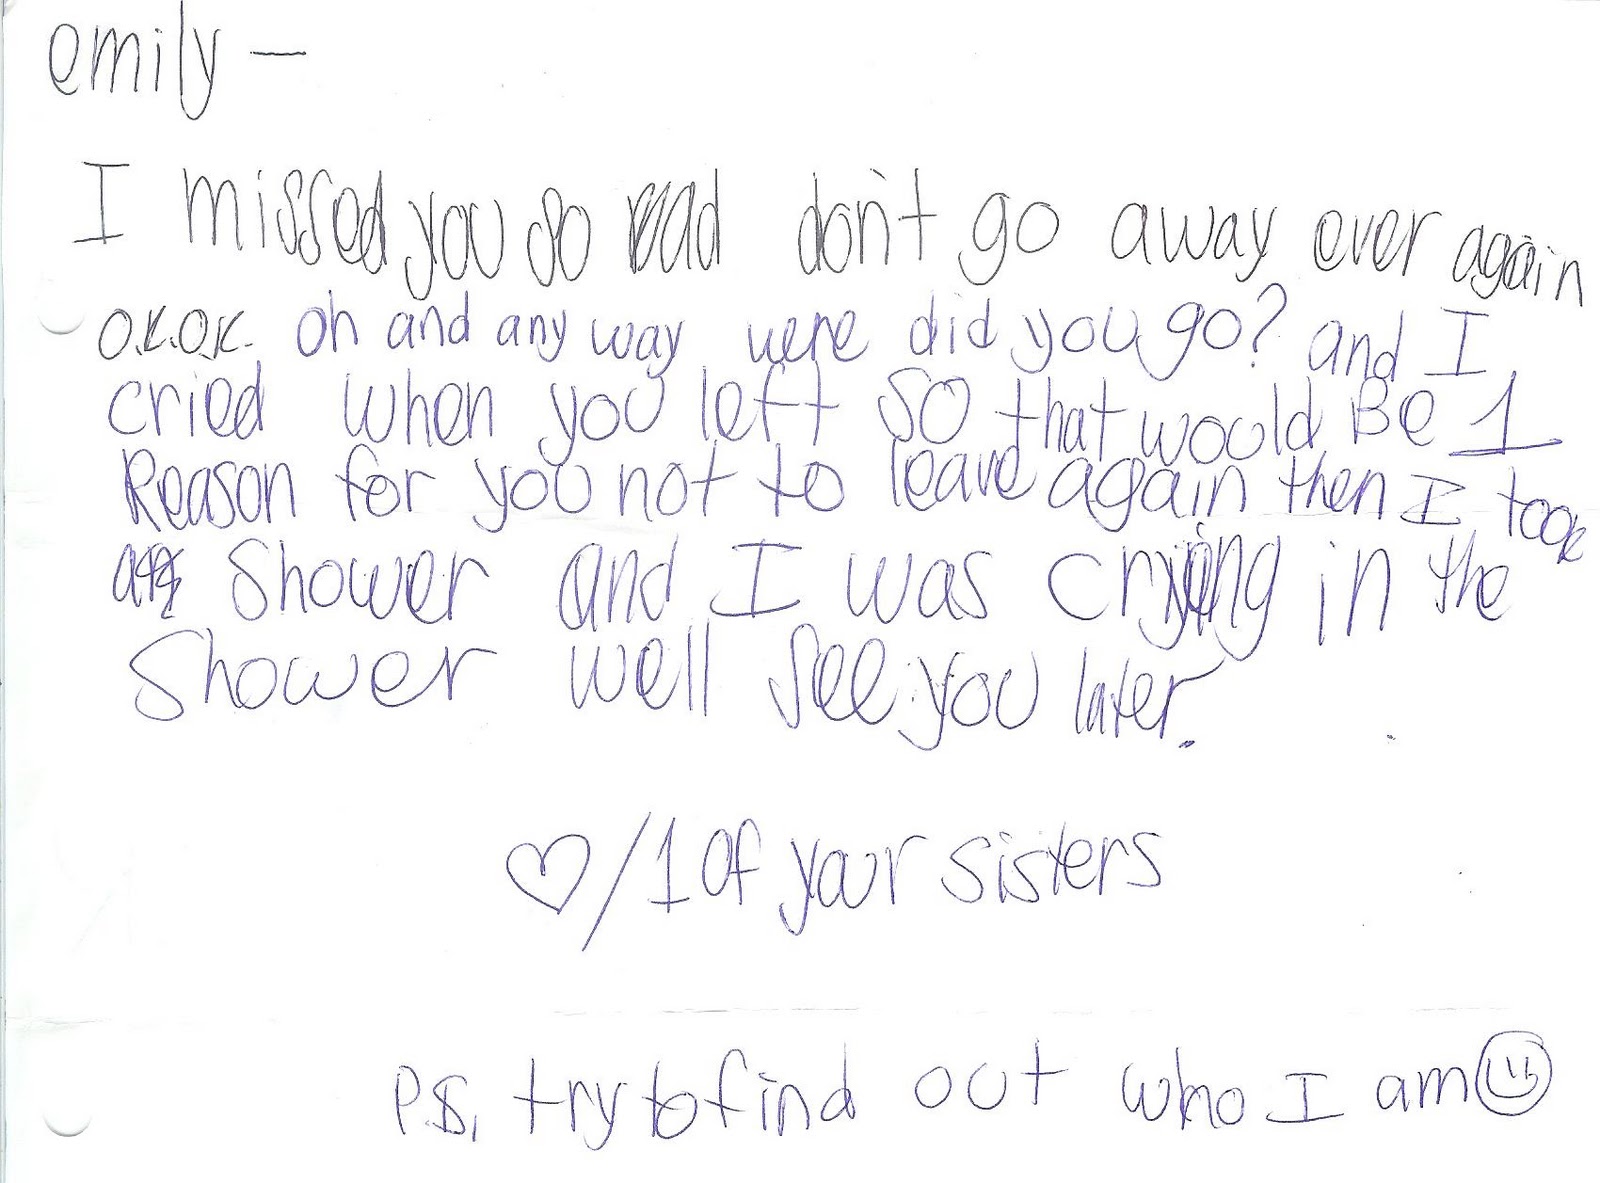 emily —
I missed you so bad don't go away ever again
O.K.O.K. oh and any way were did you go? and I
cried when you left so that would Be 1
Reason for you not to leave again then I took
a Shower and I was crying in the
Shower well see you later.
♡/1 of your sisters
P.S. try to find out who I am☺